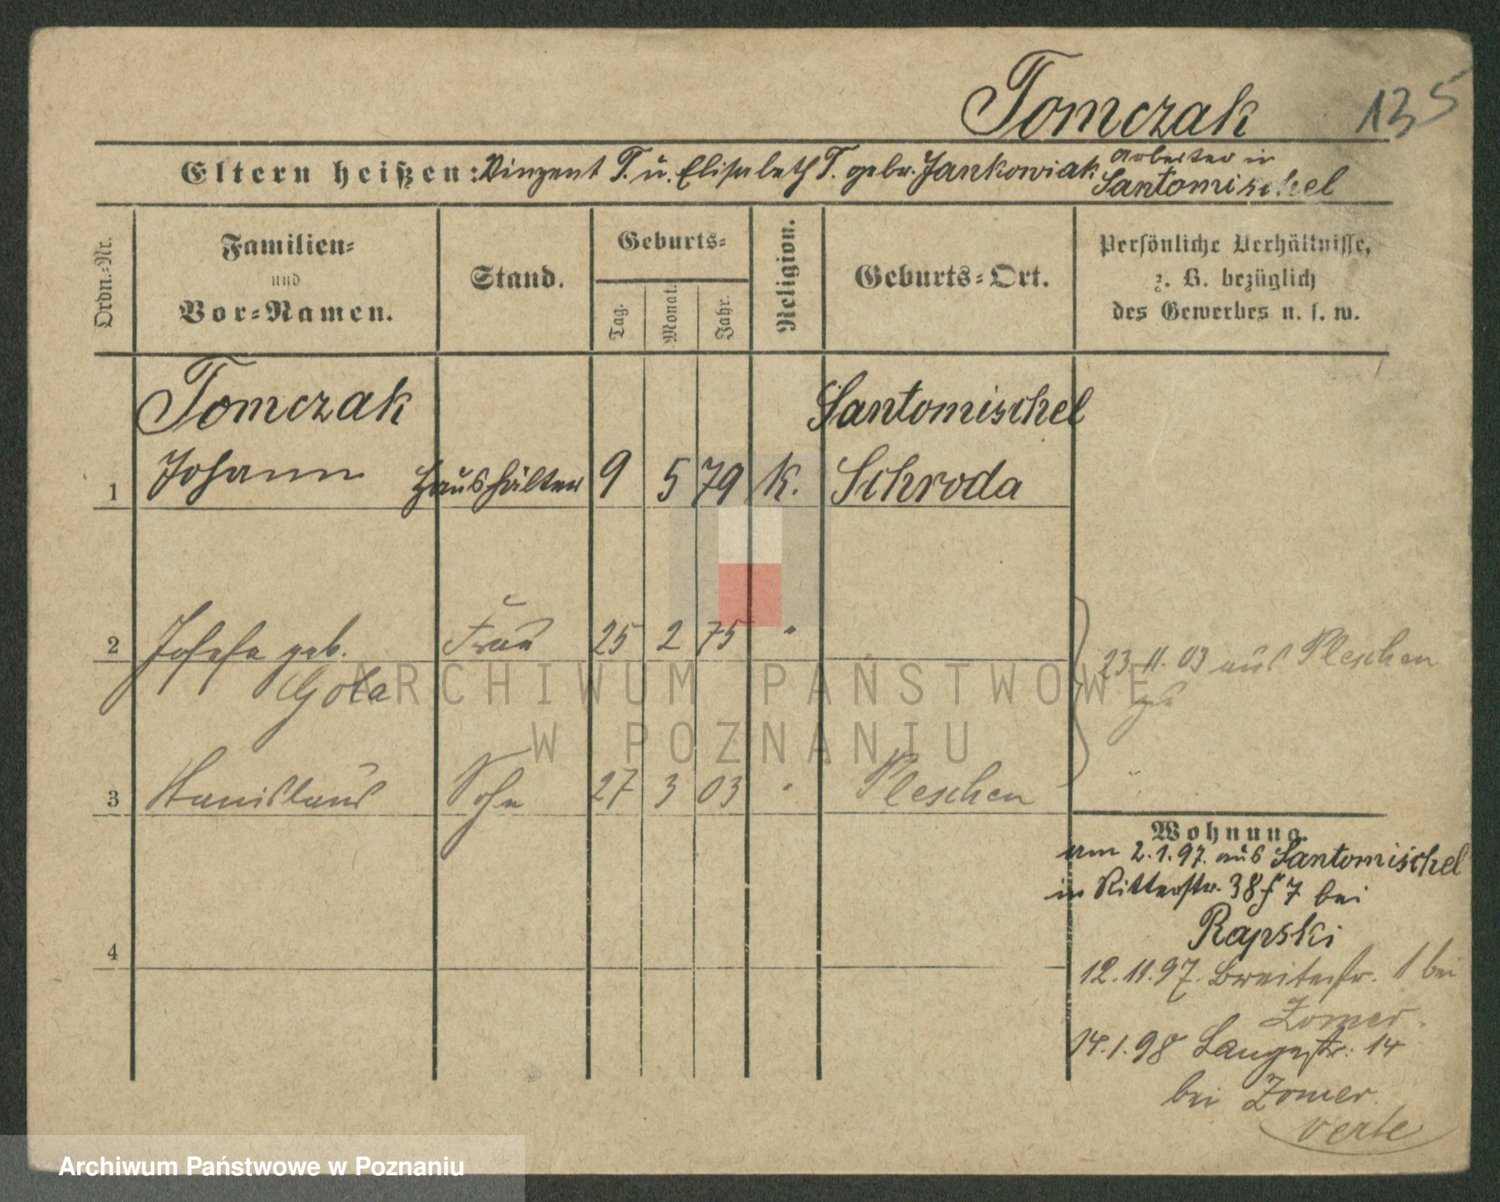 Tomczak 135
Eltern heißen: Vinzent T. u. Elisabeth T. gebr. Jankowiak Arbeiter in
Santomischel
Ordn.-Nr.
Familien-
und
Vor-Namen.
Stand.
Geburts-
Tag.
Monat.
Jahr.
Religion.
Geburts-Ort.
Persönliche Verhältnisse,
z. B. bezüglich
des Gewerbes u. s. w.
Tomczak Santomischel
1 Johann Haushälter 9 5 79 K. Schroda
2 Josefa geb. Frau 25 2 75 "
Gola
23.11.03 aus Pleschen
zu
3 Stanislaus Sohn 27 3 03 " Pleschen
Wohnung.
am 2.1.97. aus Santomischel
in Ritterstr. 38 f 7 bei
Rapski
4
12.11.97. Breitestr. 1 bei
Zomer.
14.1.98 Langestr. 14
bei Zomer.
verte
ARCHIWUM PAŃSTWOWE
W POZNANIU
Archiwum Państwowe w Poznaniu